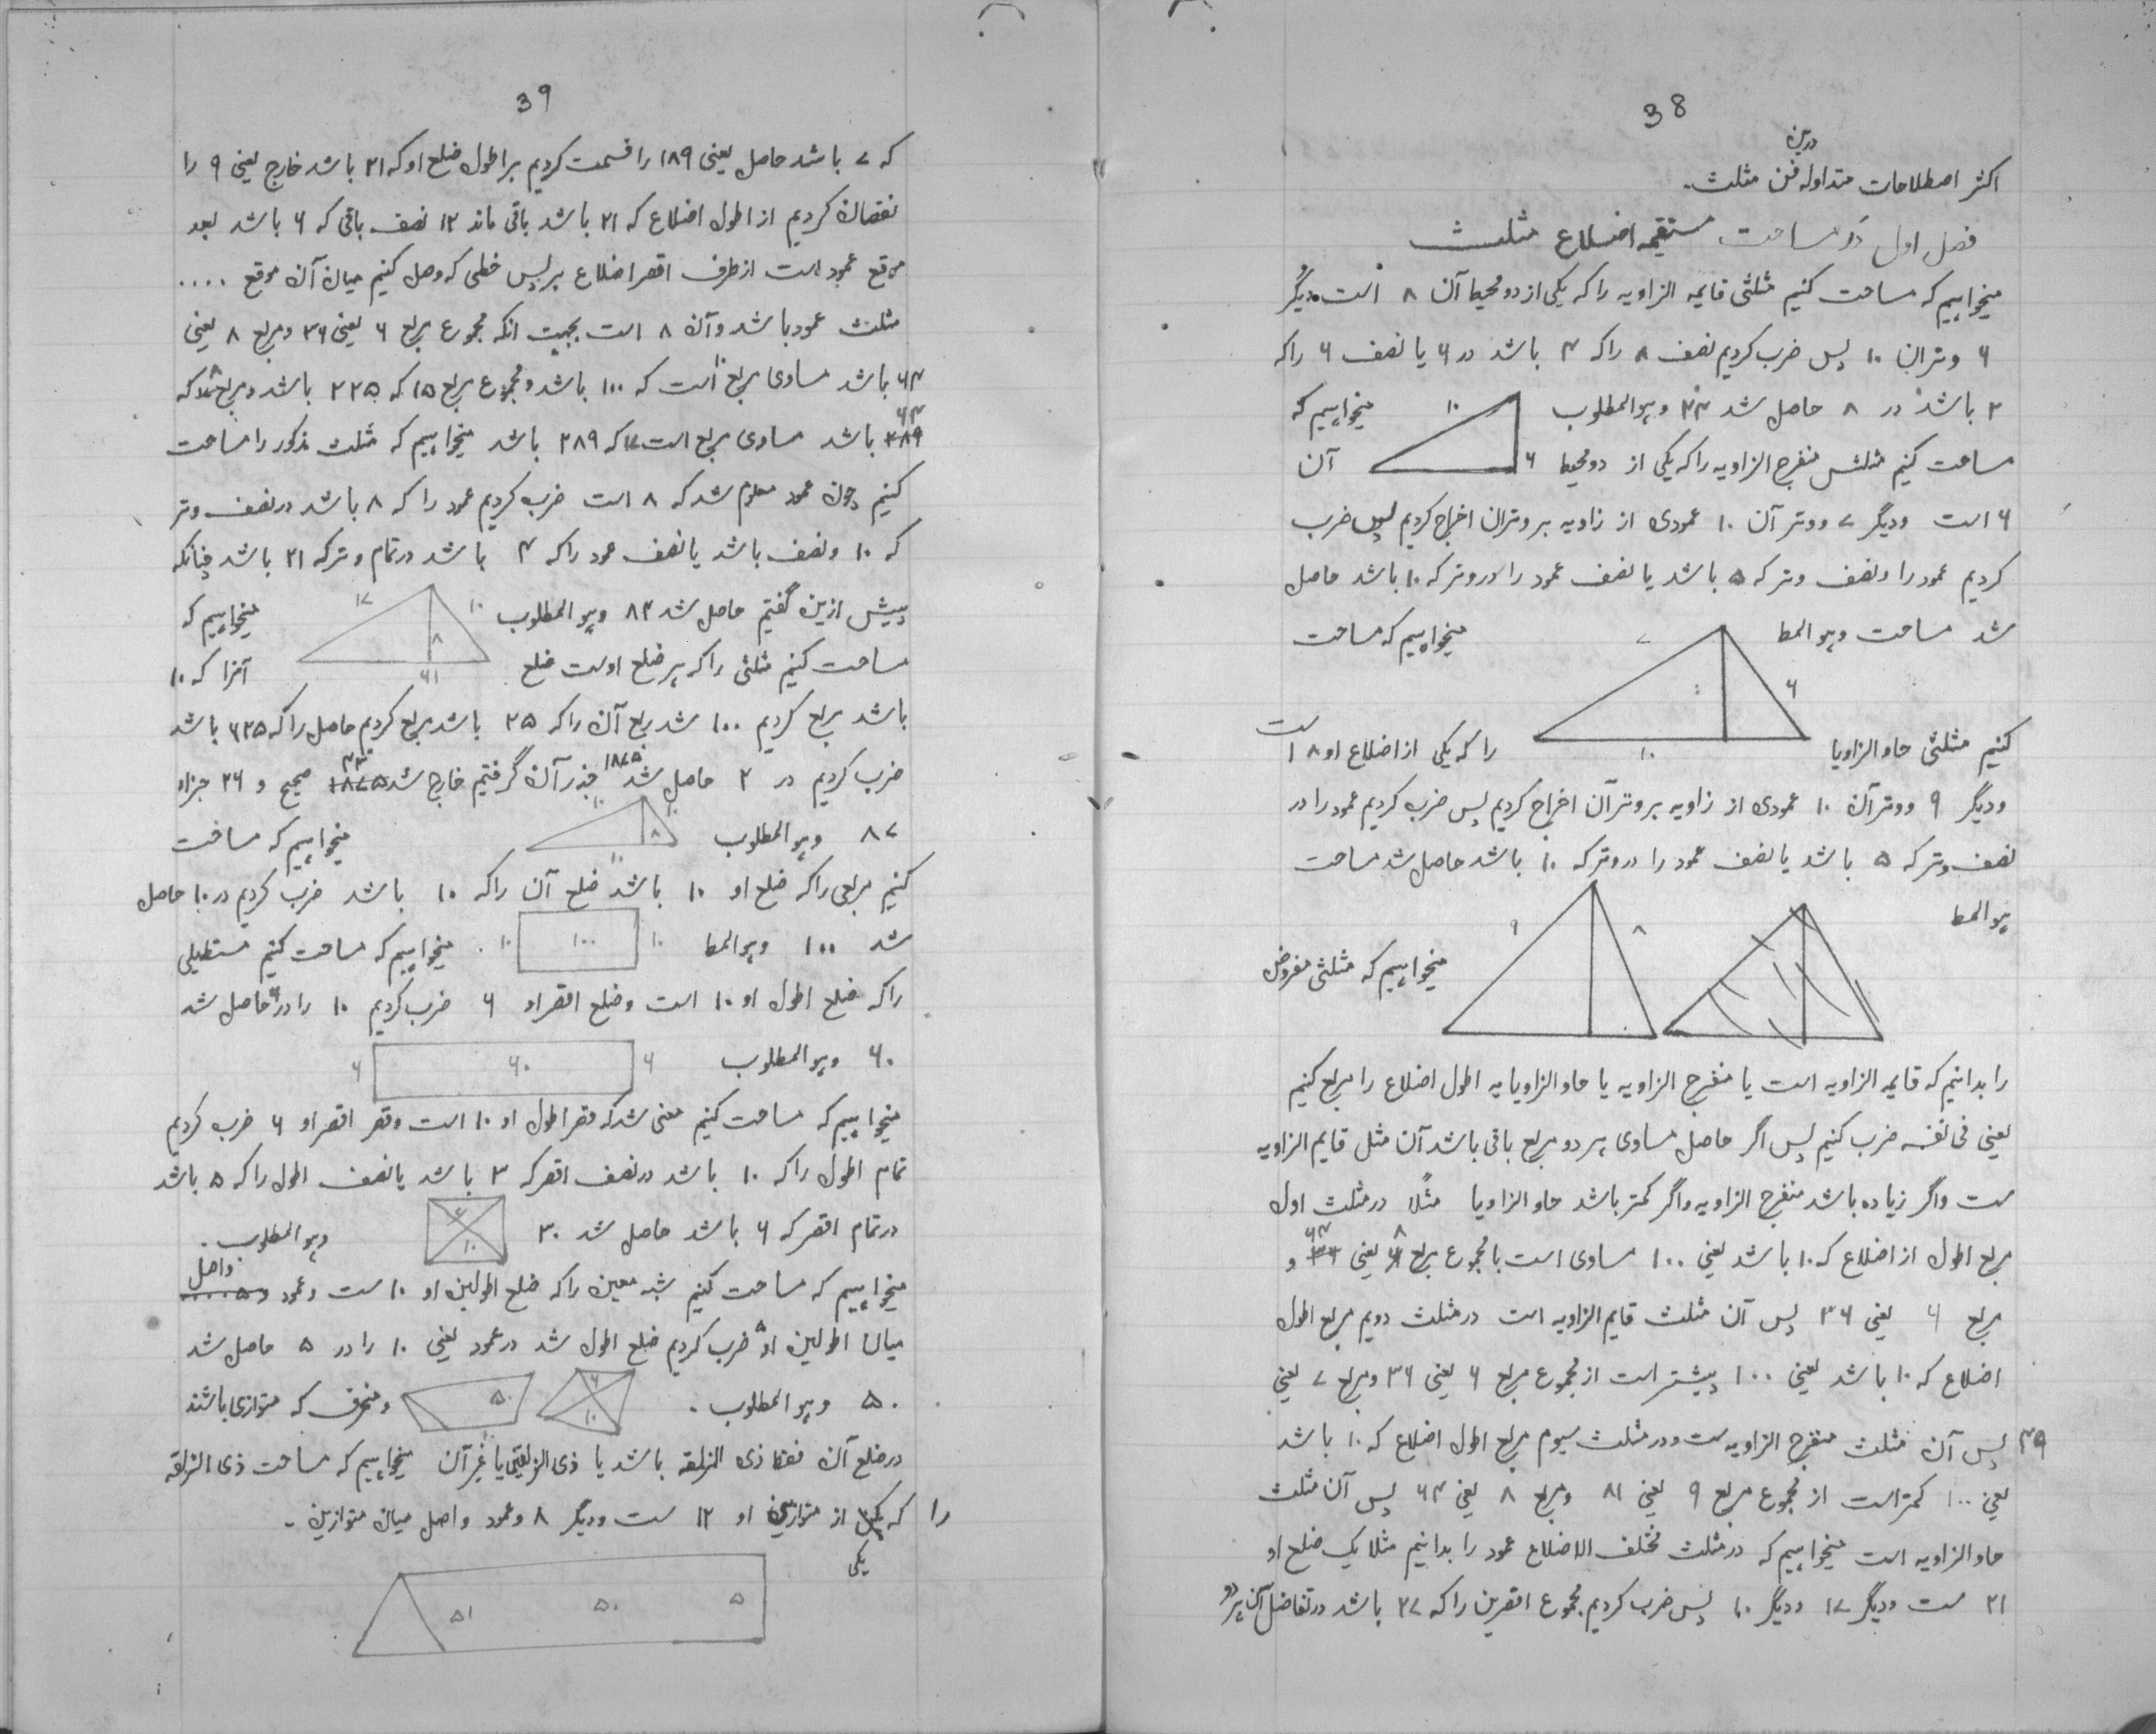 38
درین
اکثر اصطلاحات متداوله فن مثلث.
فصل اول در مساحت مستقیمه اضلاع مثلث
میخواهیم که مساحت کنیم مثلثی قایمه الزاویه را که یکی از دو محیط آن ۸ است و دیگر
۶ و وتر ان ۱۰ پس ضرب کردیم نصف ۸ را که ۴ باشد در ۶ یا نصف ۶ را که
۳ باشد در ۸ حاصل شد ۲۴ وهو المطلوب میخواهیم که
۱۰
۶
مساحت کنیم مثلثی منفرج الزاویه را که یکی از دو محیط آن
۶ است و دیگر ۷ و وتر آن ۱۰ عمودی از زاویه بر وتر ان اخراج کردیم پس ضرب
کردیم عمود را و نصف وتر که ۵ باشد یا نصف عمود را در وتر که ۱۰ باشد حاصل
شد مساحت وهو المط میخواهیم که مساحت
۷
۶
۱۰
کنیم مثلثی حاد الزاویا را که یکی از اضلاع او ۸ است
و دیگر ۹ و وتر آن ۱۰ عمودی از زاویه بر وتر آن اخراج کردیم پس ضرب کردیم عمود را در
نصف وتر که ۵ باشد یا نصف عمود را در وتر که ۱۰ باشد حاصل شد مساحت
هو المط
۹
۸
میخواهیم که مثلثی مفروض
را بدانیم که قایمه الزاویه است یا منفرج الزاویه یا حاد الزاویایه اطول اضلاع را مربع کنیم
یعنی فی نفسه ضرب کنیم پس اگر حاصل مساوی هر دو مربع باقی باشد آن مثل قایم الزاویه
ست واگر زیاده باشد منفرج الزاویه واگر کمتر باشد حاد الزاویا مثلًا در مثلث اول
مربع اطول از اضلاع که ۱۰ باشد یعنی ۱۰۰ مساوی است با مجموع مربع ۸ یعنی ۶۴ و
مربع ۶ یعنی ۳۶ پس آن مثلث قایم الزاویه است در مثلث دویم مربع اطول
اضلاع که ۱۰ باشد یعنی ۱۰۰ بیشتر است از مجموع مربع ۶ یعنی ۳۶ و مربع ۷ یعنی
۴۹ پس آن مثلث منفرج الزاویه ست و در مثلث سیوم مربع اطول اضلاع که ۱۰ باشد
یعنی ۱۰۰ کمتر است از مجموع مربع ۹ یعنی ۸۱ و مربع ۸ یعنی ۶۴ پس آن مثلث
حاد الزاویه است میخواهیم که در مثلث مختلف الاضلاع عمود را بدانیم مثلا یک ضلع او
۲۱ ست و دیگر ۱۷ و دیگر ۱۰ پس ضرب کردیم مجموع اقصرین را که ۲۷ باشد در تفاضل آن هر دو
39
که ۷ باشد حاصل یعنی ۱۸۹ را قسمت کردیم بر اطول ضلع او که ۲۱ باشد خارج یعنی ۹ را
نقصان کردیم از اطول اضلاع که ۲۱ باشد باقی ماند ۱۲ نصف باقی که ۶ باشد بعد
موقع عمود است از طرف اقصر اضلاع بر پس خطی که وصل کنیم میان آن موقع ....
مثلث عمود باشد و آن ۸ است بجهت انکه مجموع مربع ۶ یعنی ۳۶ و مربع ۸ یعنی
۶۴ باشد مساوی مربع ۱۰ است که ۱۰۰ باشد و مجموع مربع ۱۵ که ۲۲۵ باشد و مربع ۸ که
۶۴
۲۸۹ باشد مساوی مربع است ۱۷ که ۲۸۹ باشد میخواهیم که مثلث مذکور را مساحت
کنیم چون عمود معلوم شد که ۸ است ضرب کردیم عمود را که ۸ باشد در نصف وتر
که ۱۰ و نصف باشد یا نصف عمود را که ۴ باشد در تمام وتر که ۲۱ باشد چنانکه
پیش ازین گفتیم حاصل شد ۸۴ وهو المطلوب میخواهیم که
۱۷
۱۰
۸
۲۱
مساحت کنیم مثلثی را که هر ضلع اوست ضلع آنرا که ۱۰
باشد مربع کردیم ۱۰۰ شد ربع آن را که ۲۵ باشد مربع کردیم حاصل را که ۶۲۵ باشد
ضرب کردیم در ۳ حاصل شد ۱۸۷۵ جذر آن گرفتیم خارج شد ۴۳ ۱۸۷۵ صحیح و ۲۶ جزاء
۸۷ وهو المطلوب میخواهیم که مساحت
۱۰
۱۰
۸
۱۰
کنیم مربعی را که ضلع او ۱۰ باشد ضلع آن را که ۱۰ باشد ضرب کردیم در ۱۰ حاصل
شد ۱۰۰ وهو المط ۱۰ ۱۰۰ ۱۰ . میخواهیم که مساحت کنیم مستطیلی
را که ضلع اطول او ۱۰ است و ضلع اقصر او ۶ ضرب کردیم ۱۰ را در ۶ حاصل شد
۶۰ وهو المطلوب ۶ ۶۰ ۶
میخواهیم که مساحت کنیم معنی شد که قطر اطول او ۱۰ است و قطر اقصر او ۶ ضرب کردیم
تمام اطول را که ۱۰ باشد در نصف اقصر که ۳ باشد یا نصف اطول را که ۵ باشد
در تمام اقصر که ۶ باشد حاصل شد ۳۰ ۶ ۱۰ وهو المطلوب.
واصل
میخواهیم که مساحت کنیم شبه معین را که ضلع اطولین او ۱۰ ست و عمود
میان اطولین او ۵ ضرب کردیم ضلع اطول شد در عمود یعنی ۱۰ را در ۵ حاصل شد
۵۰ وهو المطلوب. ۶ ۱۰ ۵۰ و منحرف که متوازی باشند
در ضلع آن فقط ذی الزنقه باشد یا ذی الزنقتین یا غیر آن میخواهیم که مساحت ذی الزنقه
را که یکی از متوازین او ۱۲ ست و دیگر ۸ و عمود واصل میان متوازین ۔
یکی
۵۱ ۵۰ ۵